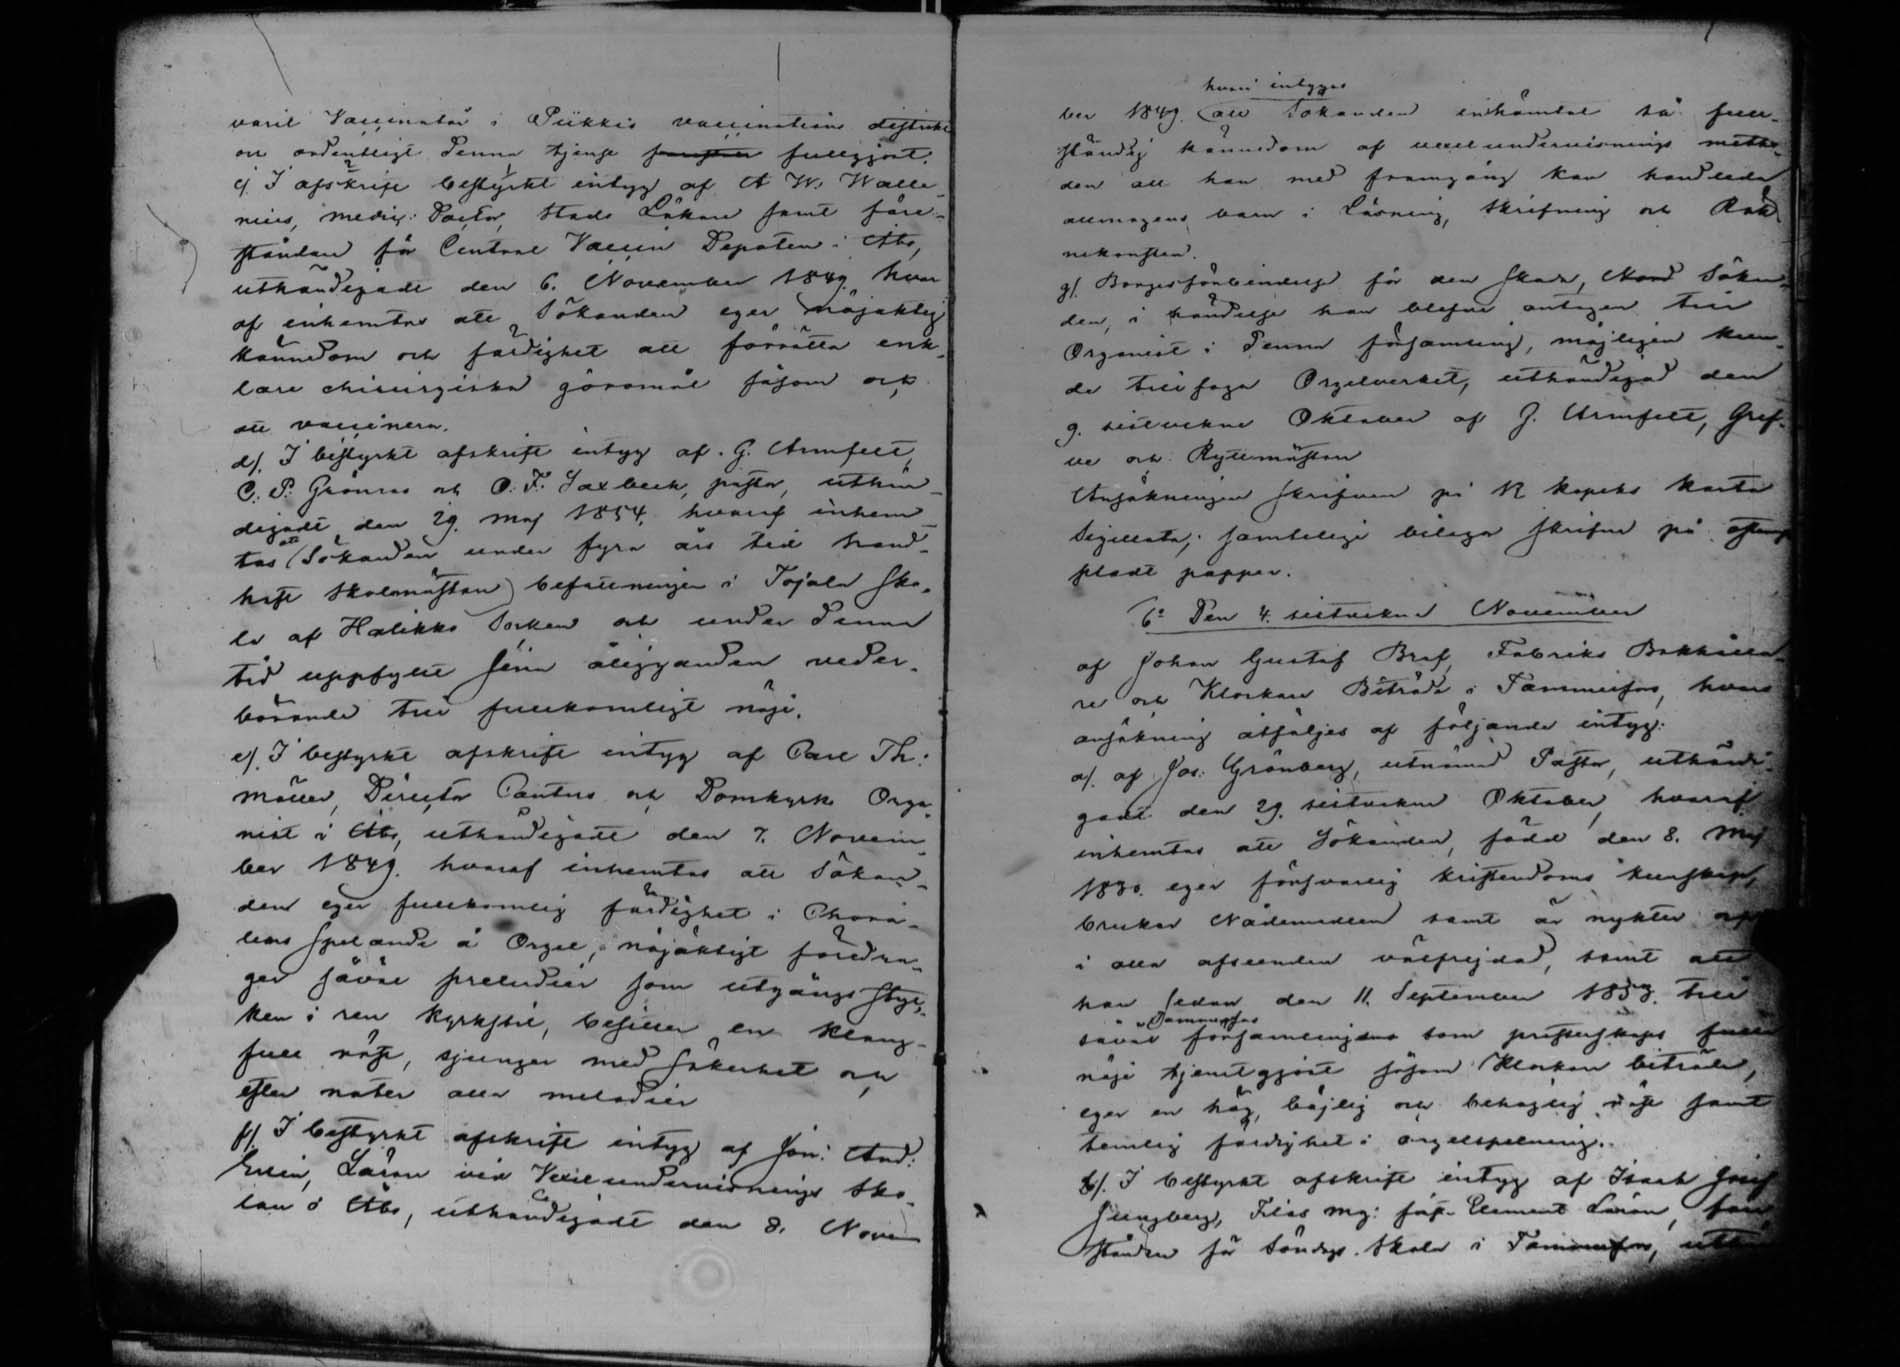 varit Vaccinatör i Piikkis vaccinations distrikt
och ordentligt denna tjenst fullgjort.
c/. I afskrift bestyrkt intyg af A W. Walle-
nius, medic: Doctor, Stads Läkare samt före-
ståndare för Central Vaccin Depoten i Åbo,
uthändigadt den 6. November 1849. hvar
af inhemtas att Sökanden eger nöjaktig
kännedom och färdighet att förrätta enk-
lare chirurgiska göromål såsom ock
att vaccinera.
d/. I bestyrkt afskrift intyg af G. Armfelt,
C. P. Grönroos och O. F. Saxbeck, pastor, uthän-
digadt den 29. Maj 1854, hvaraf inhem-
tas att Sökanden under fyra års tid hand-
haft skolemästare befattningen i Tojala sko-
la af Halikko Socken och under denna
tid uppfyllt sina åligganden veder-
börande till fullkomligt nöje.
e/. I bestyrkt afskrift intyg af Carl Th:
Möller, Director Cantus och Domkyrko Orga-
nist i Åbo, uthändigadt den 7. Novem-
ber 1849. hvaraf inhemtas att Sökan-
den eger fullkomlig färdighet i Chora-
lens spelande å Orgel, nöjaktigt föredra-
ger såväl preludier som utgångs styc-
ken i ren kyrkstil, besitter en klang-
full röst, sjunger med säkerhet och
efter noter alla melodier
f/. I bestyrkt afskrift intyg af Joh: And:
Lärare vid Vexelundervisnings Sko-
lan i Åbo, uthändigadt den 8. Novem
hvari intygas
ber 1849. att Sökanden inhämtat så full-
ständig kännedom af vexelundervisnings metho-
den att han med framgång kan handleda
allmogens barn i Läsning, Skrifning och Räk-
nekonsten.
g/. Borgesförbindelse för den skada, Sökan-
den, i händelse han blefve antagen till
Organist i denna församling, möjligen kun-
de tillfoga Orgelverket, uthändigad den
9. sistvekne Oktober af G. Armfelt, Gref-
ve och Ryttmästare
Ansökningen skrifven på 12 kopeks karta
Sigillata; samtelige bilagor skrifne på ostemp-
lade papper.
6:o Den 4. sistvekne November
af Johan Gustaf Braf, Fabriks Bokhålla-
re och Klockare Biträde i Tammerfors, hvars
ansökning åtföljes af följande intyg:
a/. af Jos: Grönberg, utnämnd Pastor, uthändi-
gadt den 29. sistvekne Oktober, hvaraf
inhemtas att Sökanden, född den 8. Maj
1830. eger försvarlig kristendoms kunskap,
brukar Nådemedlen samt är nykter och
i alla afseenden välfrejdad, samt att
han sedan den 11. September 1853. till
Tammerfors
såväl församlingens som presterskapets fulla
nöje tjenstgjort såsom Klockare biträde,
eger en hög, böjlig och behaglig röst samt
temlig färdighet i orgelspelning.
b/. I bestyrkt afskrift intyg af Isaak Josef
Ljungberg, Filos Mg: Element Lärare, före-
ståndare för Söndags Skola i Tammerfors,